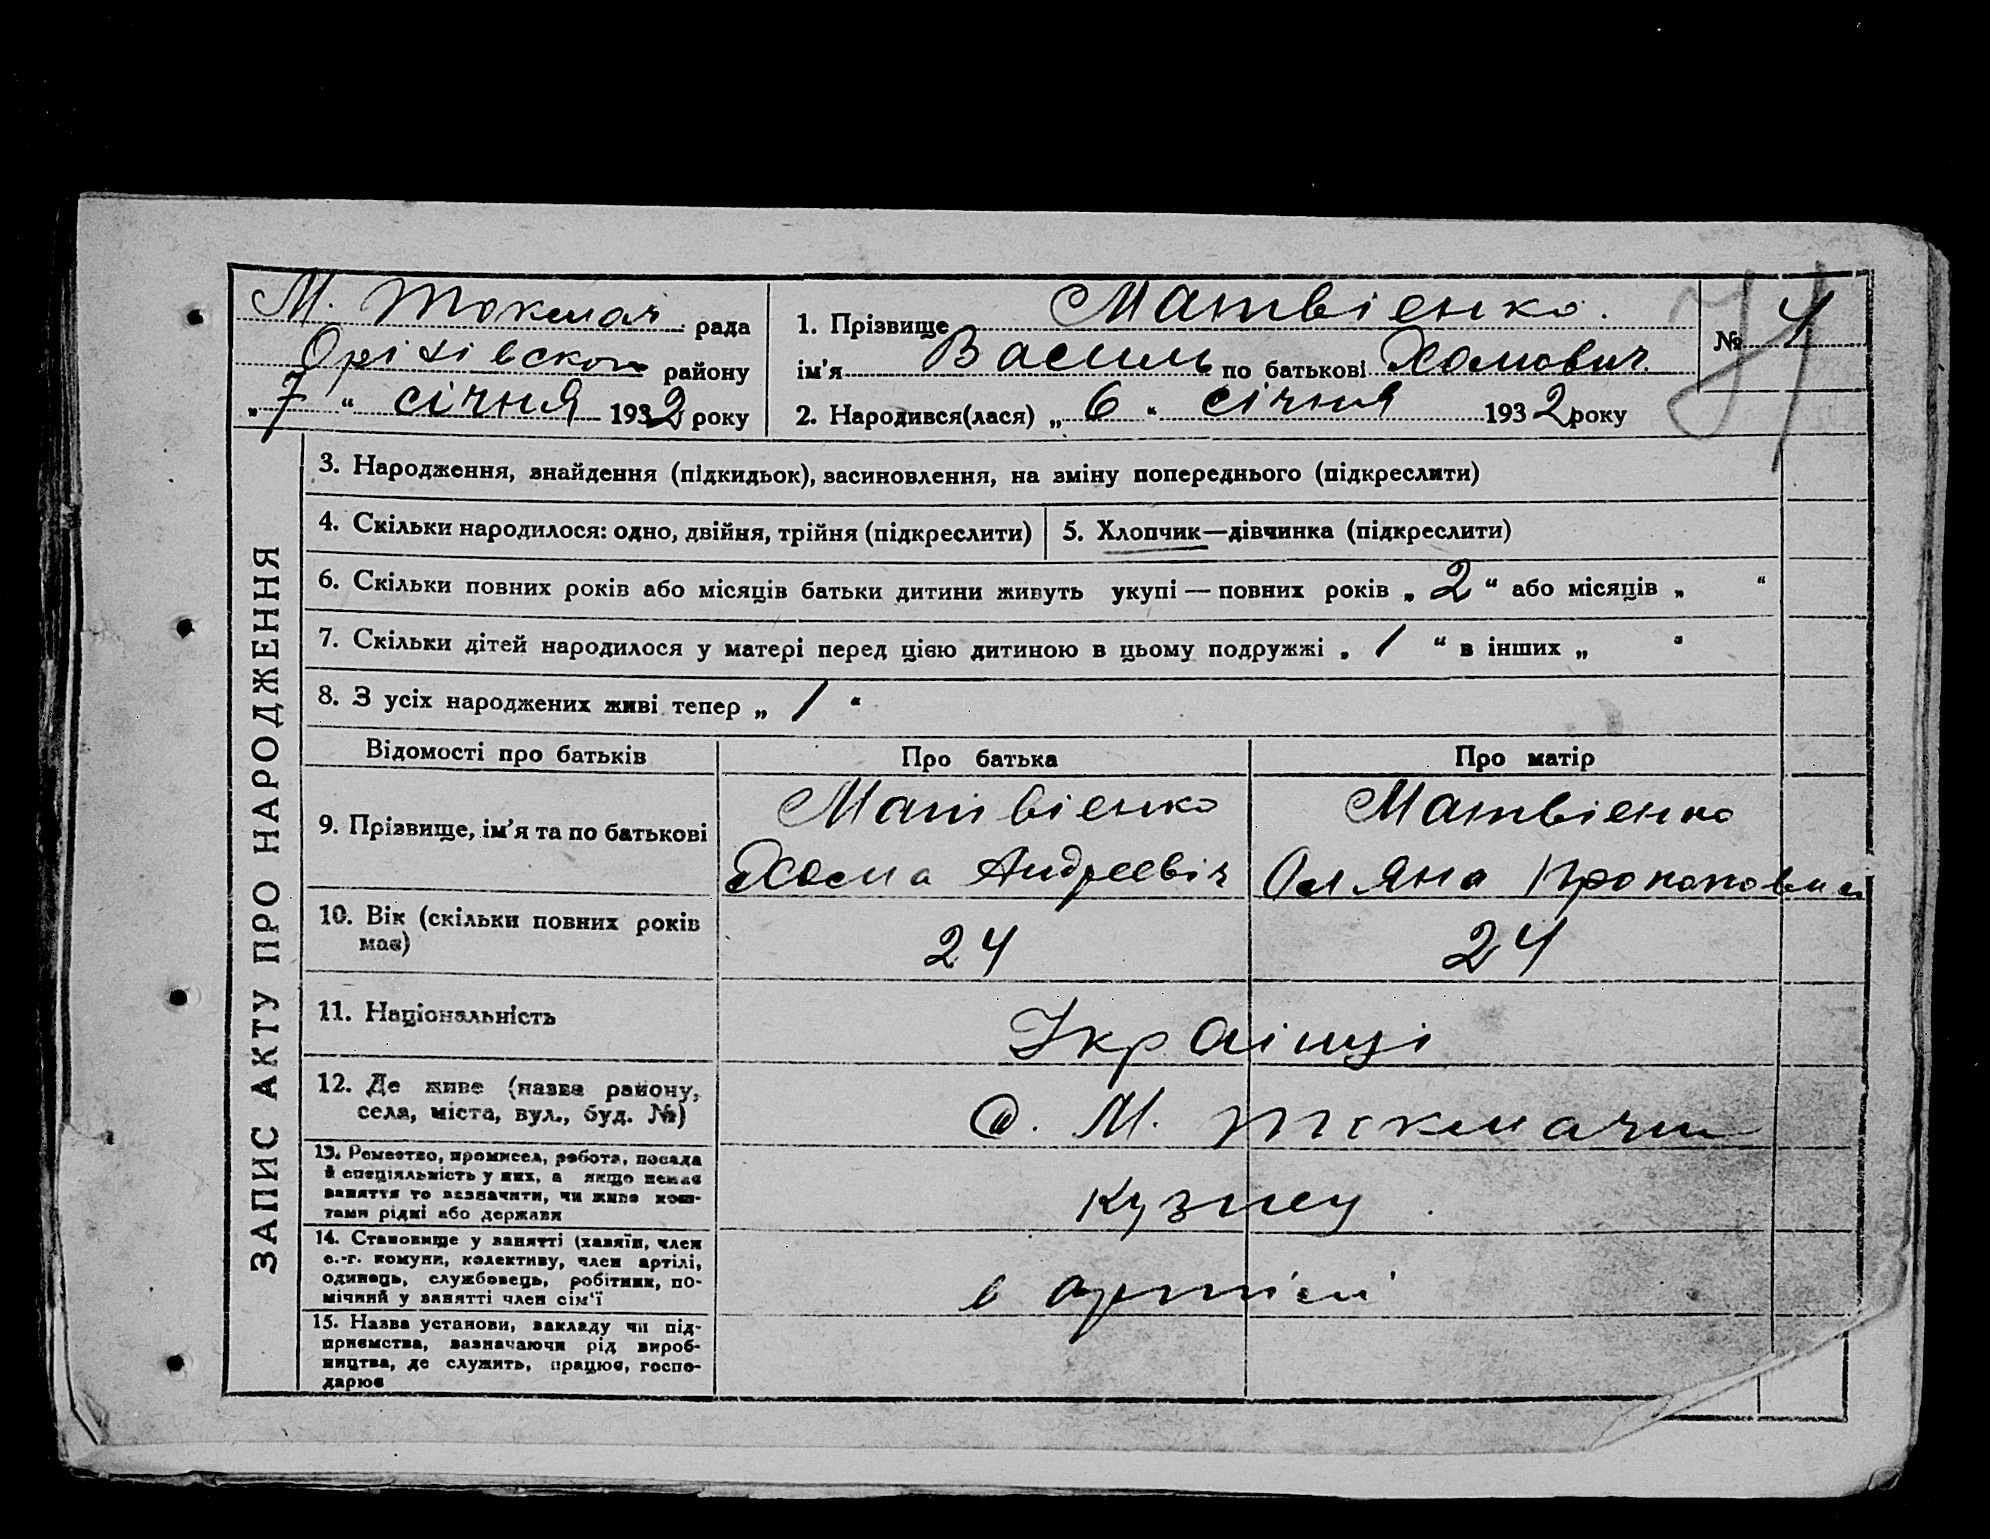 М. Токмач рада
Оріхівского району
„ 7 “ січня 1932 року
1. Прізвище Матвієнко.
ім'я Василь по батькові Хомович
2. Народився(лася) „ 6 “ січня 1932 року
№ 4
ЗАПИС АКТУ ПРО НАРОДЖЕННЯ
3. Народження, знайдення (підкидьок), засиновлення, на зміну попереднього (підкреслити)
4. Скільки народилося: одно, двійня, трійня (підкреслити)
5. Хлопчик—дівчинка (підкреслити)
6. Скільки повних років або місяців батьки дитини живуть укупі — повних років „ 2 “ або місяців „ “
7. Скільки дітей народилося у матері перед цією дитиною в цьому подружжі „ 1 “ в інших „ “
8. З усіх народжених живі тепер „ 1 “
Відомості про батьків
Про батька
Про матір
9. Прізвище, ім'я та по батькові
Матвієнко
Хома Андреєвіч
Матвієнко
10. Вік (скільки повних років
має)
24
24
11. Національність
Українці
12. Де живе (назва району,
села, міста, вул., буд. №)
с. М. Токмачи
13. Ремество, промисел, робота, посада
й спеціяльність у них, а якщо немає
заняття то зазначити, чи живе кош-
тами рідні або держави
кузнец
14. Становище у занятті (хазяїн, член
с.-г. комуни, колективу, член артілі,
одинець, службовець, робітник, по-
мічний у занятті член сім'ї
в артілі
15. Назва установи, закладу чи під-
приємства, зазначаючи рід вироб-
ництва, де служить, працює, госпо-
дарює